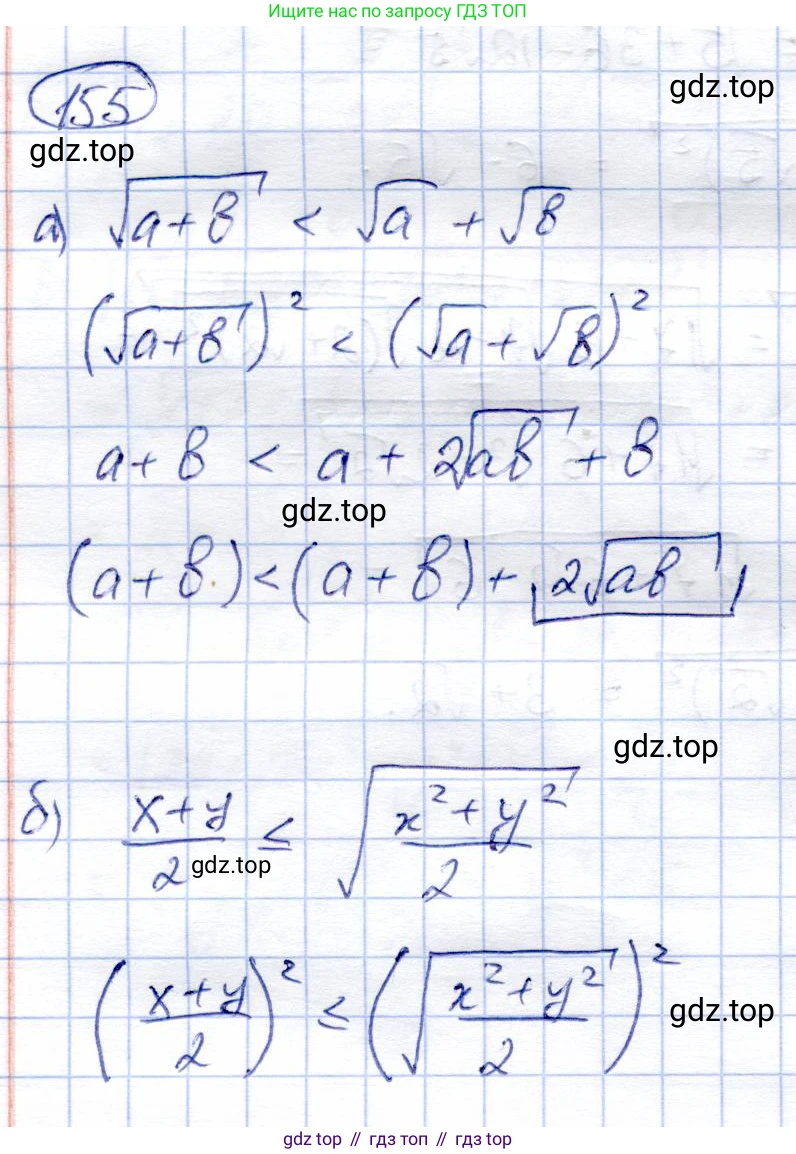 Ищите нас по запросу ГДЗ ТОП
155
gdz.top
gdz.top
а) √(a+в) < √a + √в
(√(a+в))² < (√a + √в)²
a+в < a + 2√(aв) + в
gdz.top
(a+в) < (a+в) + 2√(aв),
gdz.top
б) (x+y)/2 ≤ √((x²+y²)/2)
gdz.top
((x+y)/2)² ≤ (√((x²+y²)/2))²
gdz.top
gdz top // гдз топ // гдз top